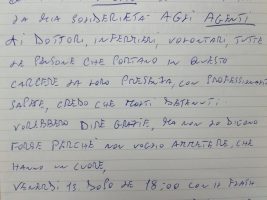 LA MIA SOLIDERIETÀ AGLI AGENTI
AI DOTTORI, INFERMIERI, VOLONTARI, TUTTE
LE PERSONE CHE PORTANO IN QUESTO
CARCERE LA LORO PRESENZA, CON PROFESSIONALI
SAPERE, CREDO CHE MOLTI DETENUTI
VOREBBERO DIRE GRAZIE, MA NON LO DICONO
FORSE PERCHÈ NON VOGLIO AMMETTERE, CHE
HANNO UN CUORE,
VENERDI 13 DOPO LE 18:00 CON IL FLASH